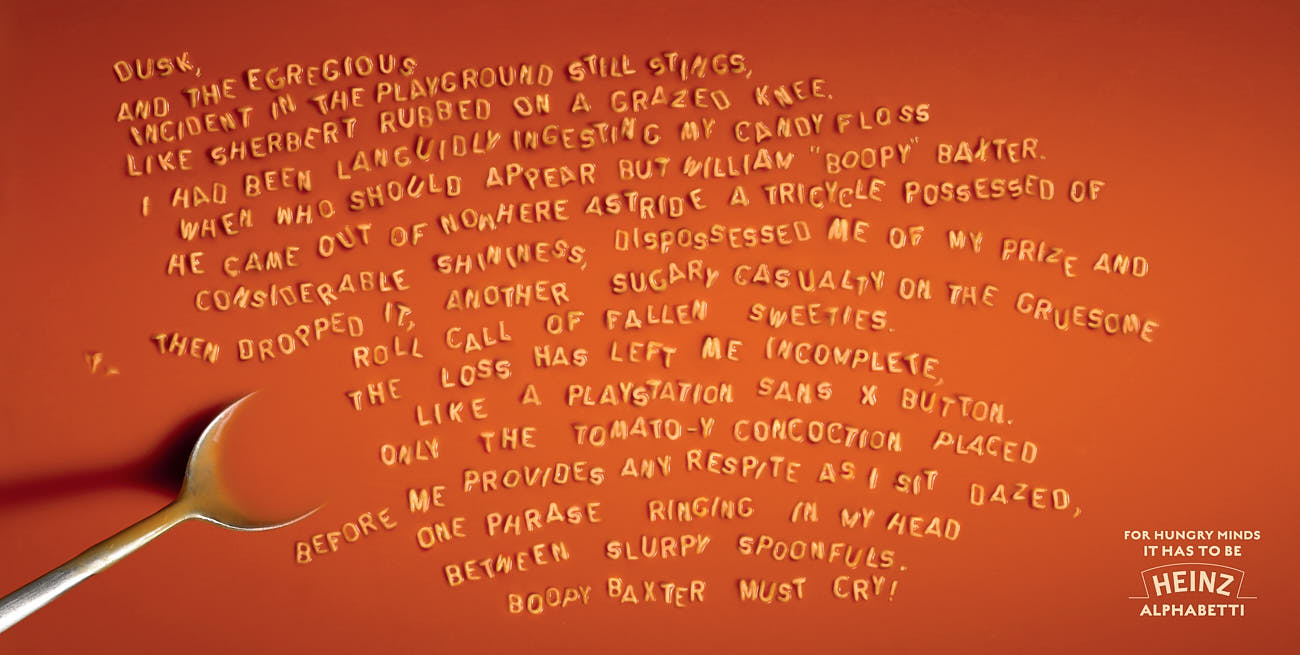 DUSK,
AND THE EGREGIOUS
INCIDENT IN THE PLAYGROUND STILL STINGS,
LIKE SHERBERT RUBBED ON A GRAZED KNEE.
I HAD BEEN LANGUIDLY INGESTING MY CANDY FLOSS
WHEN WHO SHOULD APPEAR BUT WILLIAM "BOOPY" BAXTER.
HE CAME OUT OF NOWHERE ASTRIDE A TRICYCLE POSSESSED OF
CONSIDERABLE SHININESS, DISPOSSESSED ME OF MY PRIZE AND
THEN DROPPED IT, ANOTHER SUGARY CASUALTY ON THE GRUESOME
ROLL CALL OF FALLEN SWEETIES.
THE LOSS HAS LEFT ME INCOMPLETE,
LIKE A PLAYSTATION SANS X BUTTON.
ONLY THE TOMATO-Y CONCOCTION PLACED
BEFORE ME PROVIDES ANY RESPITE AS I SIT DAZED,
ONE PHRASE RINGING IN MY HEAD
BETWEEN SLURPY SPOONFULS.
BOOPY BAXTER MUST CRY!
FOR HUNGRY MINDS
IT HAS TO BE
HEINZ
ALPHABETTI